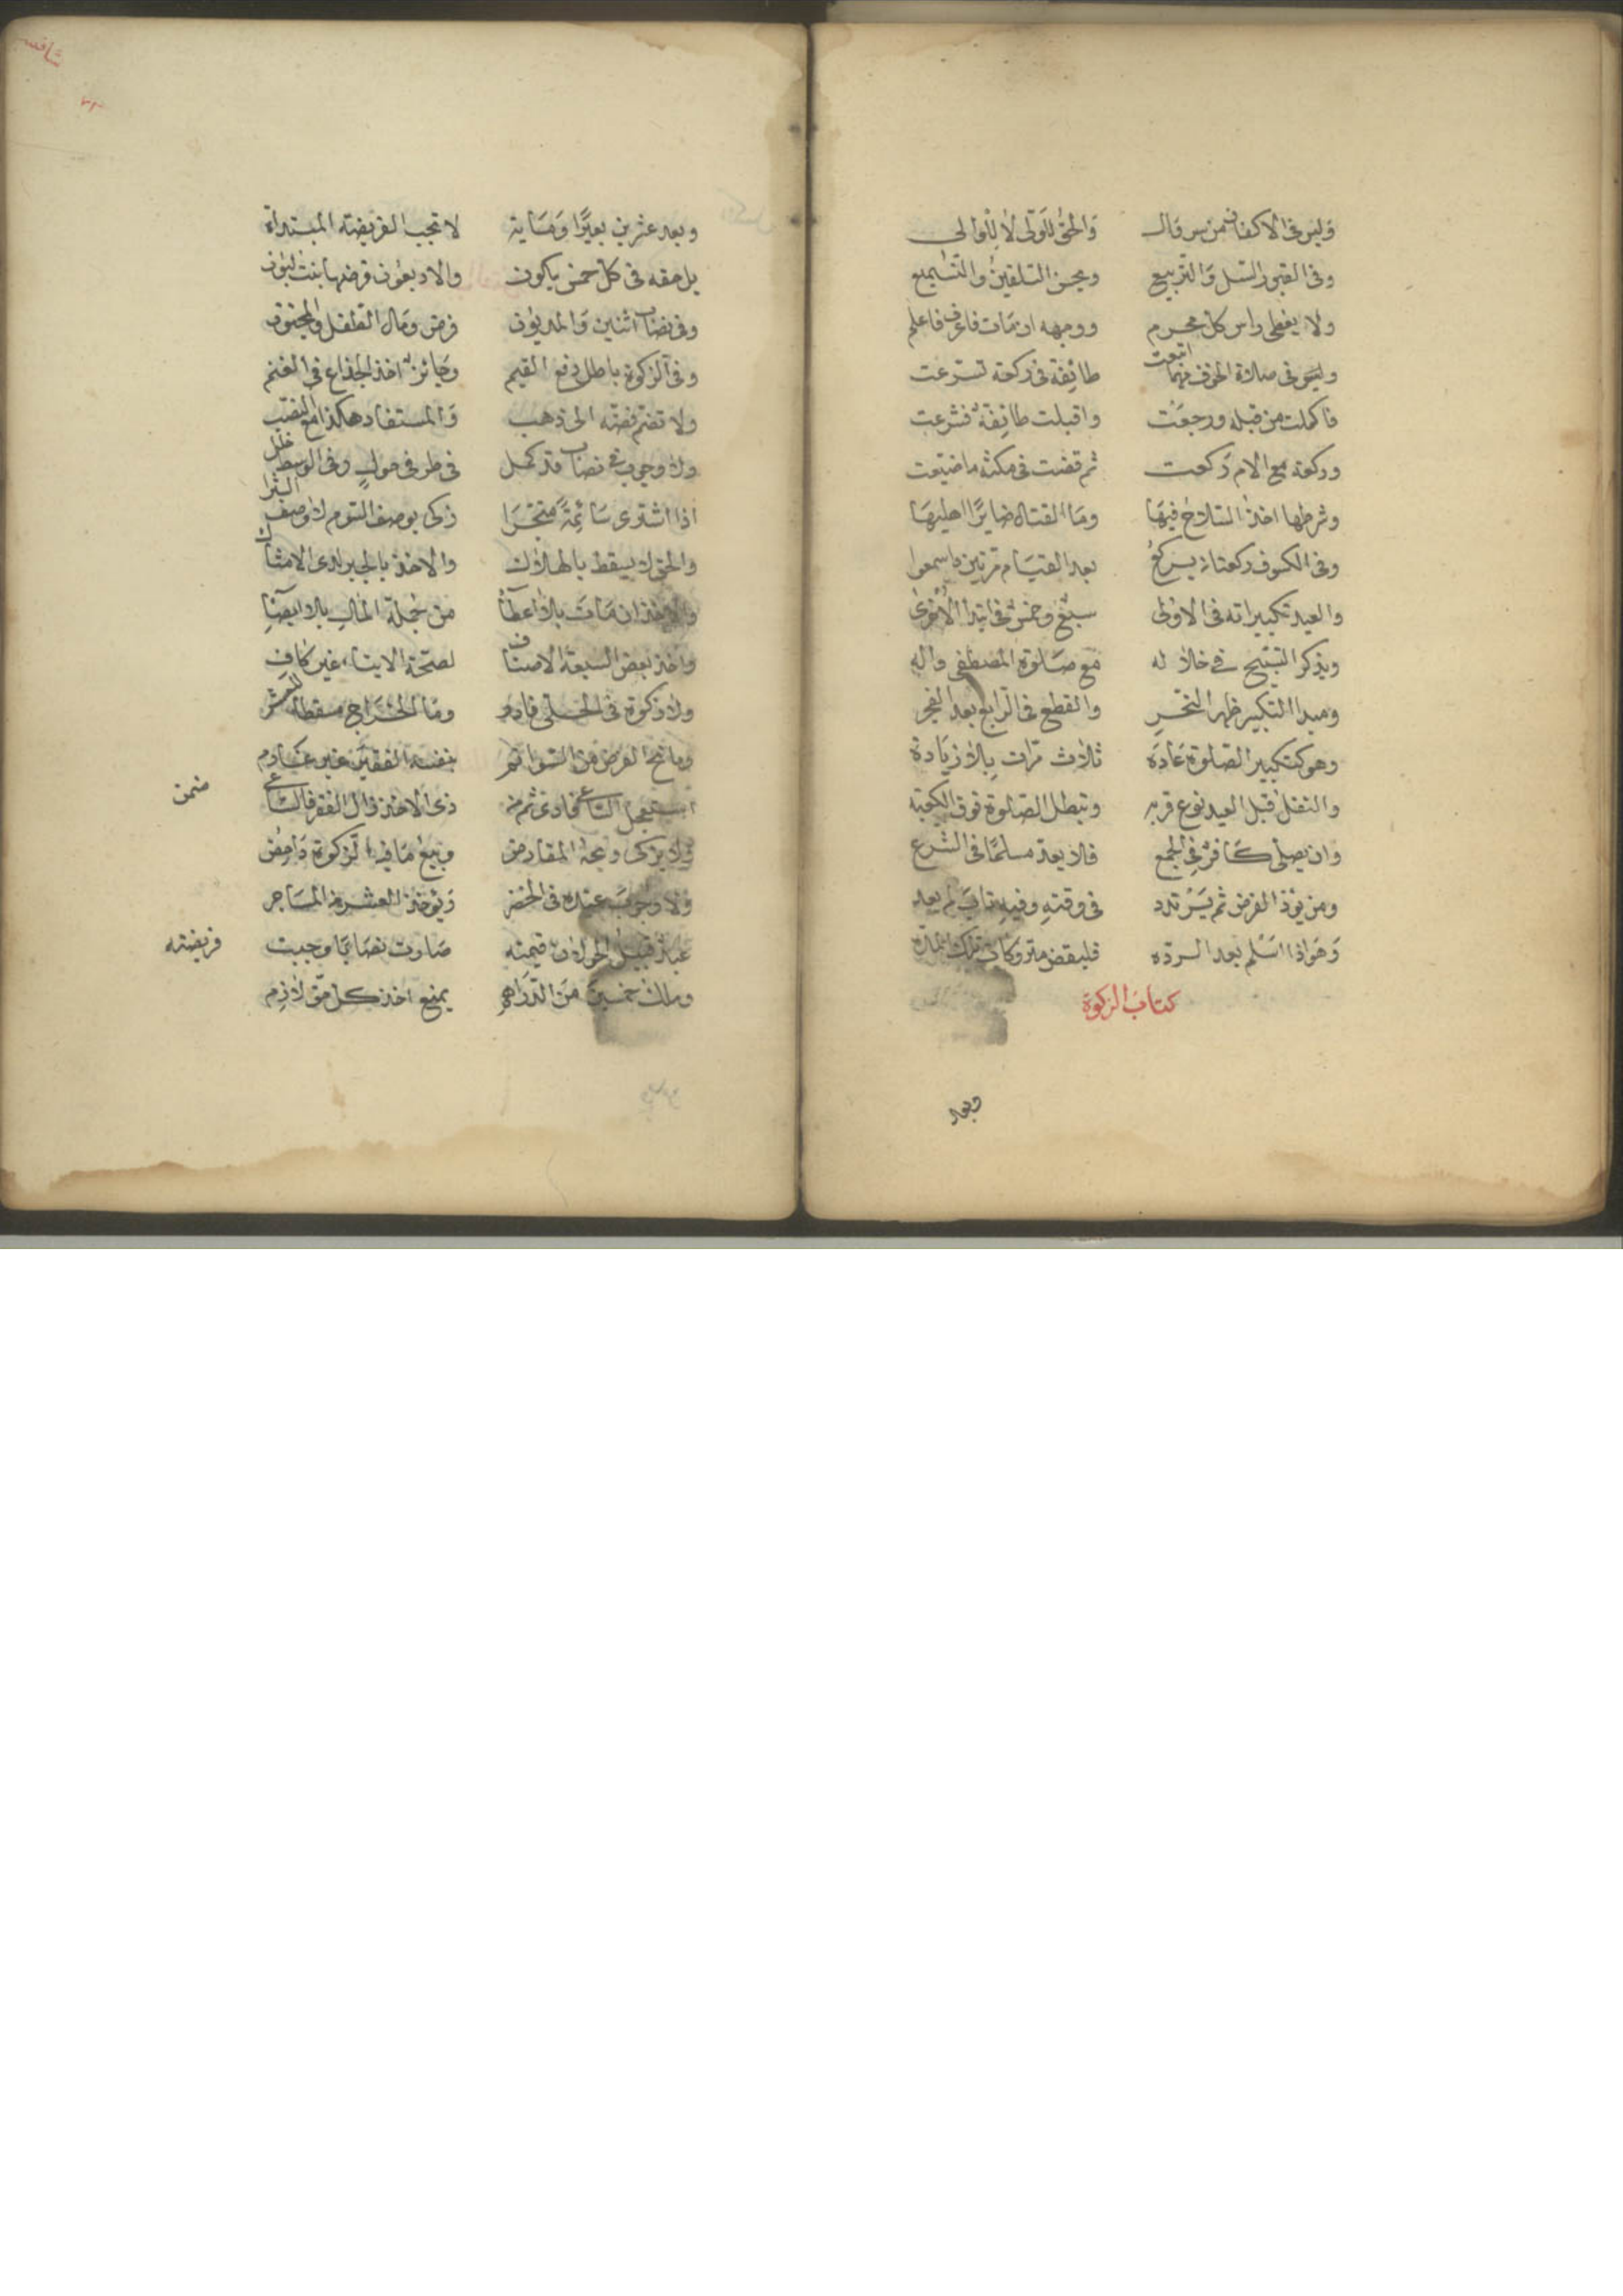 وليس في الاكفان من سروال والحق للولي لا للوالي
وفي القبور السل والتربيع ويحسن التلقين والتسميع
ولا يغطى راس كل محرم ووجهه ان مات فاعرف فاعلم
وليس في صلاة الخوف مهما اتبعت طائفة في ركعة تسرعت
فاكملت من قبله ورجعت واقبلت طائفة فشرعت
وركعة مع الامام ركعت ثم قضت في مكثه ما ضيعت
وشرطها اخذ السلاح فيها وما القتال ضايرا اهليها
وفي الكسوف ركعتان يركع بعد القيام مرتين فاسمعوا
والعيد تكبيراته في الاولى سبع وخمس في ابتدا الاخرى
ويذكر التسبيح في خلاله مع صلوة المصطفى واله
ومبدا التكبير ظهر النحر والقطع في الرابع بعد الفجر
وهو كتكبير الصلوة عادة ثلاث مرات بلا زيادة
والنفل قبل العيد نوع قربه وتبطل الصلوة فوق الكعبه
وان يصلي كافر في الجمع فلا يعد مسلما في الشرع
ومن يؤد الفرض ثم يرتدد في وقته وفيه تاب لم يعد
وهو اذا اسلم بعد الرده فليقض متروكات تلك المده
كتاب الزكوة
وبعد
وبعد عشرين بعيرا ومايه لا تجب الفريضة المبتداة
بل حقه في كل خمسين يكون والاربعون فرضها بنت لبون
وفي نصاب اثنين والمديون فرض ومال الطفل والمجنون
وفي الزكوة باطل دفع القيم وجائز اخذ الجذاع في الغنم
ولا تضم فضة الى ذهب والمستفاد هكذا مع النصب
ولا وجوب في نصاب قد كمل في طرفي حول وفي الوسط خلل
اذا اشترى سائمة متجرا زكى بوصف السوم لا وصف الشرا
والحق لا يسقط بالهلاك والاخذ بالجبر لدى الامساك
والاخذ ان مات بلا اعطاء من جملة المال بلا ايصاء
واخذ بعض السبعة الاصناف لصحة الايتاء غير كاف
ولا زكوة في الحلي فادر وما الخراج مسقط للعشر
بنفسه الفقير غير غارم
استعجل الساعي فادى ثم من ذي الاخذ زال الفقر فالساعي ضمن
ولا يزكى ربحه المقارض وبيع ما فيه الزكوة داحض
ولا وجوب عنده في الخضر ويؤخذ العشر من المستاجر
عبد قبيل الحول قيمته صارت نصابا وجبت فريضته
وملك خمسين من الدراهم يمنع اخذ كل حق لازم